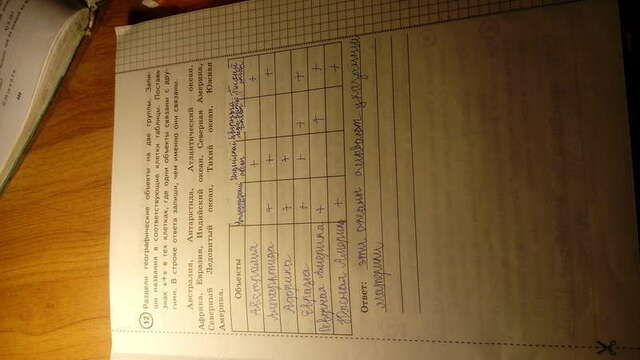 12 Раздели географические объекты на две группы. Запи-
ши названия в соответствующие клетки таблицы. Поставь
знак «+» в тех клетках, где одни объекты связаны с дру-
гими. В строке ответа запиши, чем именно они связаны.
Австралия, Антарктида, Атлантический океан,
Африка, Евразия, Индийский океан, Северная Америка,
Северный Ледовитый океан, Тихий океан, Южная
Америка.
Объекты Индийский океан Тихий
Австралия + +
Антарктида + + +
Африка + +
Евразия + + + +
Северная Америка + + +
Южная Америка + +
Ответ: эти океаны омывают указанные
материки